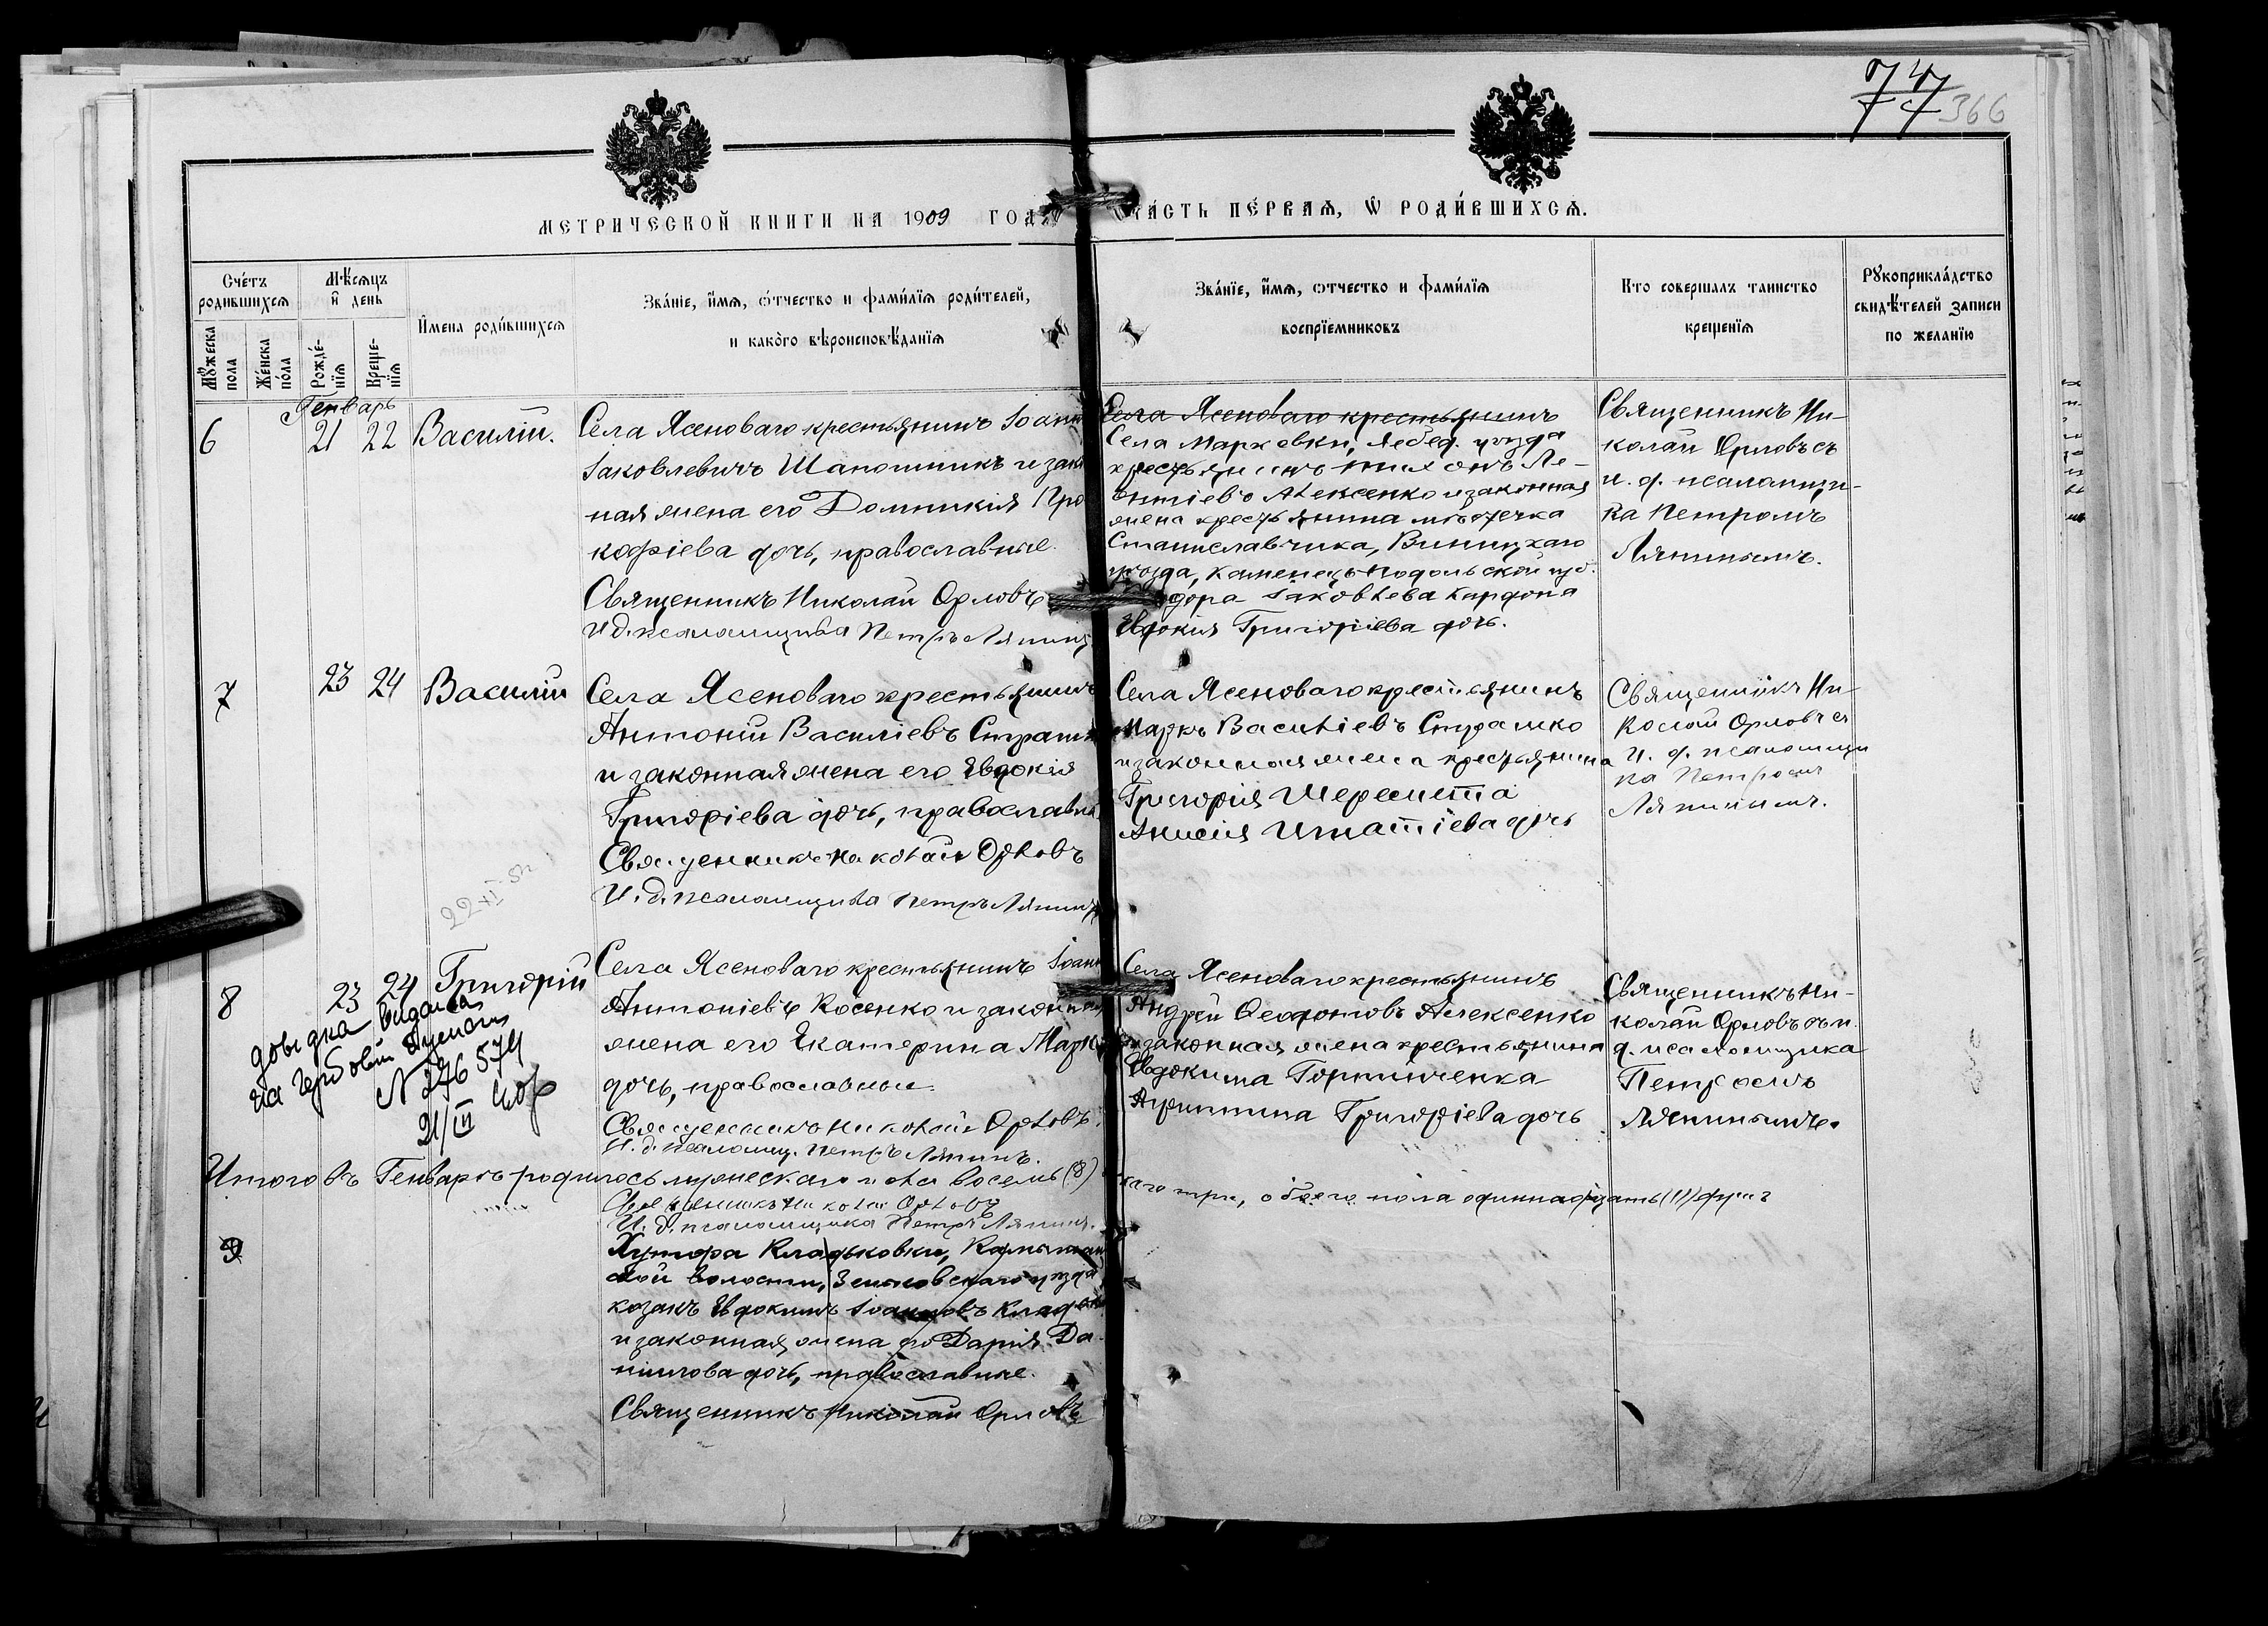 74
77
366
МЕТРИЧЕСКОЙ КНИГИ НА 1909 ГОД
ЧА́СТЬ ПЕ́РВАѦ, Ѡ РОДИ́ВШИХСѦ.
Сче́тъ родившихсѧ
Мѣсѧцъ и҆ день
Мꙋжеска пола
Же́нска по́ла
Рожде́-нїѧ
Креще-нїѧ
И҆мена роди́вшихсѧ
Зва́нїе, и҆́мѧ, ѻ҆́тчество и фами́лїѧ роди́телей,
и како́го вѣроисповѣ́данїѧ
Зва́нїе, и҆́мѧ, ѻтчество и фами́лїѧ
воспрїемниковъ
Кто совершалъ таинство
крещенїѧ
Рꙋкоприкла́дство
свидѣ́телей записи
по желанїю
Генварь
6
21 22
Василій.
Села Ясеноваго крестьянинъ Іоанн
Іаковлевичъ Шапошникъ и зак
ная жена его Домникія Про
кофіева дочь, православные.
Священникъ Николай Орловъ
И д. псаломщика Петръ Ляпинъ
Села Ясеноваго крестьянинъ
Села Марковки, Лебед. уезда
крестьянинъ Тихонъ Ле-
онтіевъ Алексенко и законная
жена крестьянина местечка
Станиславчика, Виницкаго
уезда, Каменецъ-Подольской губ.
дора Іаковлева
Евдокія Григоріева дочь.
Священникъ Ни-
колай Орловъ съ
и. д. псаломщи-
ка Петромъ
Ляпинымъ.
7
23 24
Василій
Села Ясеноваго крестьянинъ
Антоній Василіевъ
и законная жена его Евдокія
Григоріева дочь, православн
Священникъ Николай Орловъ
И. д. псаломщика Петръ Ляпинъ
Села Ясеноваго крестьянинъ
Маркъ Василіевъ
и законная жена крестьянина
Григорія Шересчета
Анисія Игнатіева дочь
Священникъ Ни-
колай Орловъ съ
и. д. псаломщи
ка Петромъ
Ляпинымъ.
8
23 24
Григорій
довидка видана
на гербовій
N 276574
21/III
Села Ясеноваго крестьянинъ Іоанн
Антоніевъ Косенко и законная
жена его Екатерина Марк
дочь, православные.
Священникъ Николай Орловъ.
И. д. псаломщ. Петръ Ляпинъ.
Села Ясеноваго крестьянинъ
Андрей Феофотовъ Алексенко
и законная жена крестьянина
Евдокима Горпинченка
Агрипина Григоріева дочь
Священникъ Ни-
колай Орловъ съ и.
д. псаломщика
Петромъ
Ляпинымъ.
Итого въ Генваре родилось мужескаго пола восемь (8)
каго три, обоего пола одиннадцать (11) душъ
Священникъ Николай Орловъ
И. д. псаломщика Петръ Ляпинъ.
9
Хутора Кладьковки,
ской волости, Зеньковскаго уезда
козакъ Евдокимъ Іоанновъ
и законная жена его Дарія Да-
ніилова дочь, православные.
Священникъ Николай Орловъ